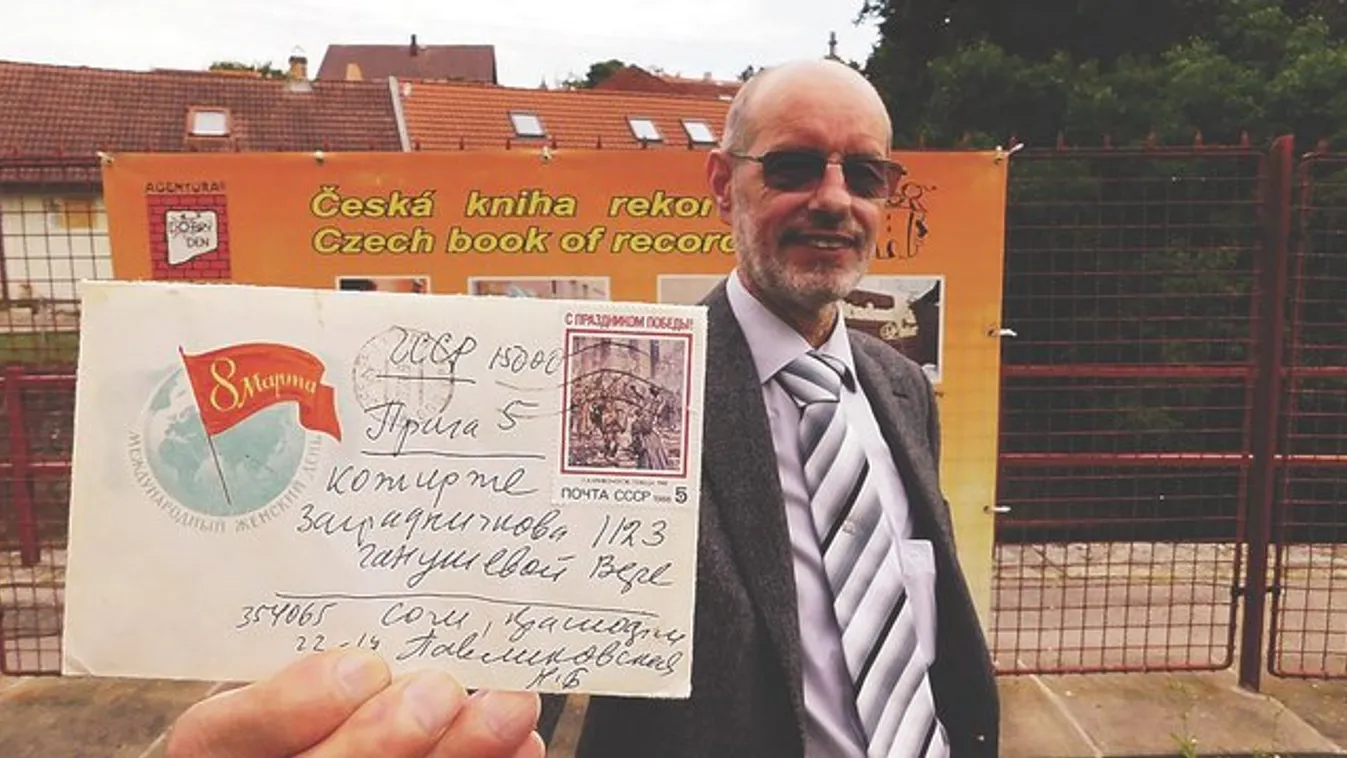 AGENTURA
DOBRÝ
DEN
Česká kniha rekor
Czech book of record
8 Марта
МЕЖДУНАРОДНЫЙ ЖЕНСКИЙ ДЕНЬ
С ПРАЗДНИКОМ ПОБЕДЫ!
ПОЧТА СССР 1988 5
ЧССР 15000
Прага 5
Коширже
Заградничкова 1123
Ганушевой Вере
354065 Сочи,
22-14 Павликовская
Н.Б